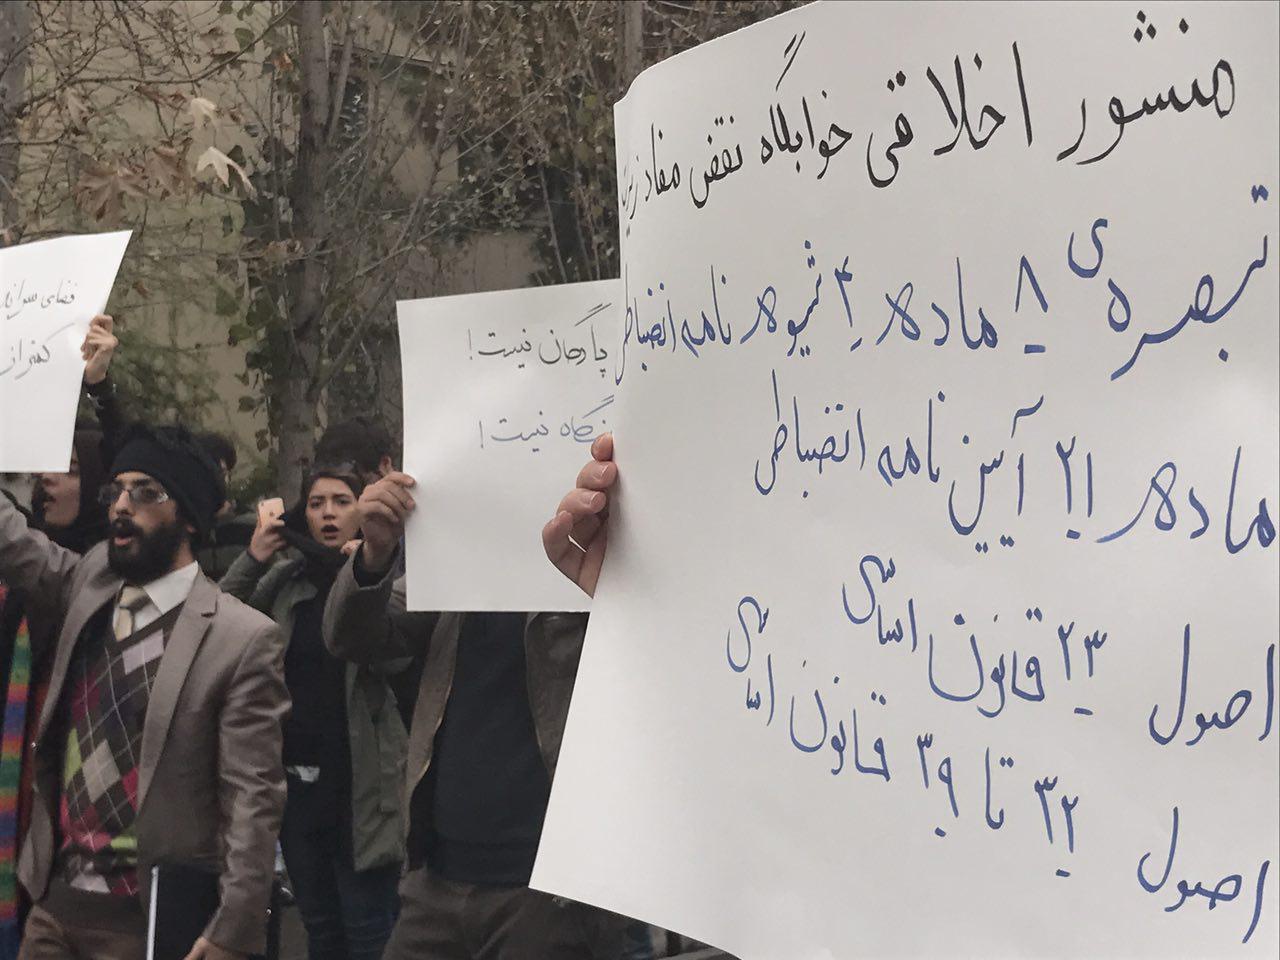 منشور اخلاقی خوابگاه نقض مفاد زیر است
تبصره‌ی ۸ ماده ۴ شیوه نامه انضباطی
ماده ۲۱ آیین نامه انضباطی
اصول ۲۳ قانون اساسی
اصول ۳۲ تا ۳۹ قانون اساسی
پادگان نیست!
نگاه نیست!
فضای